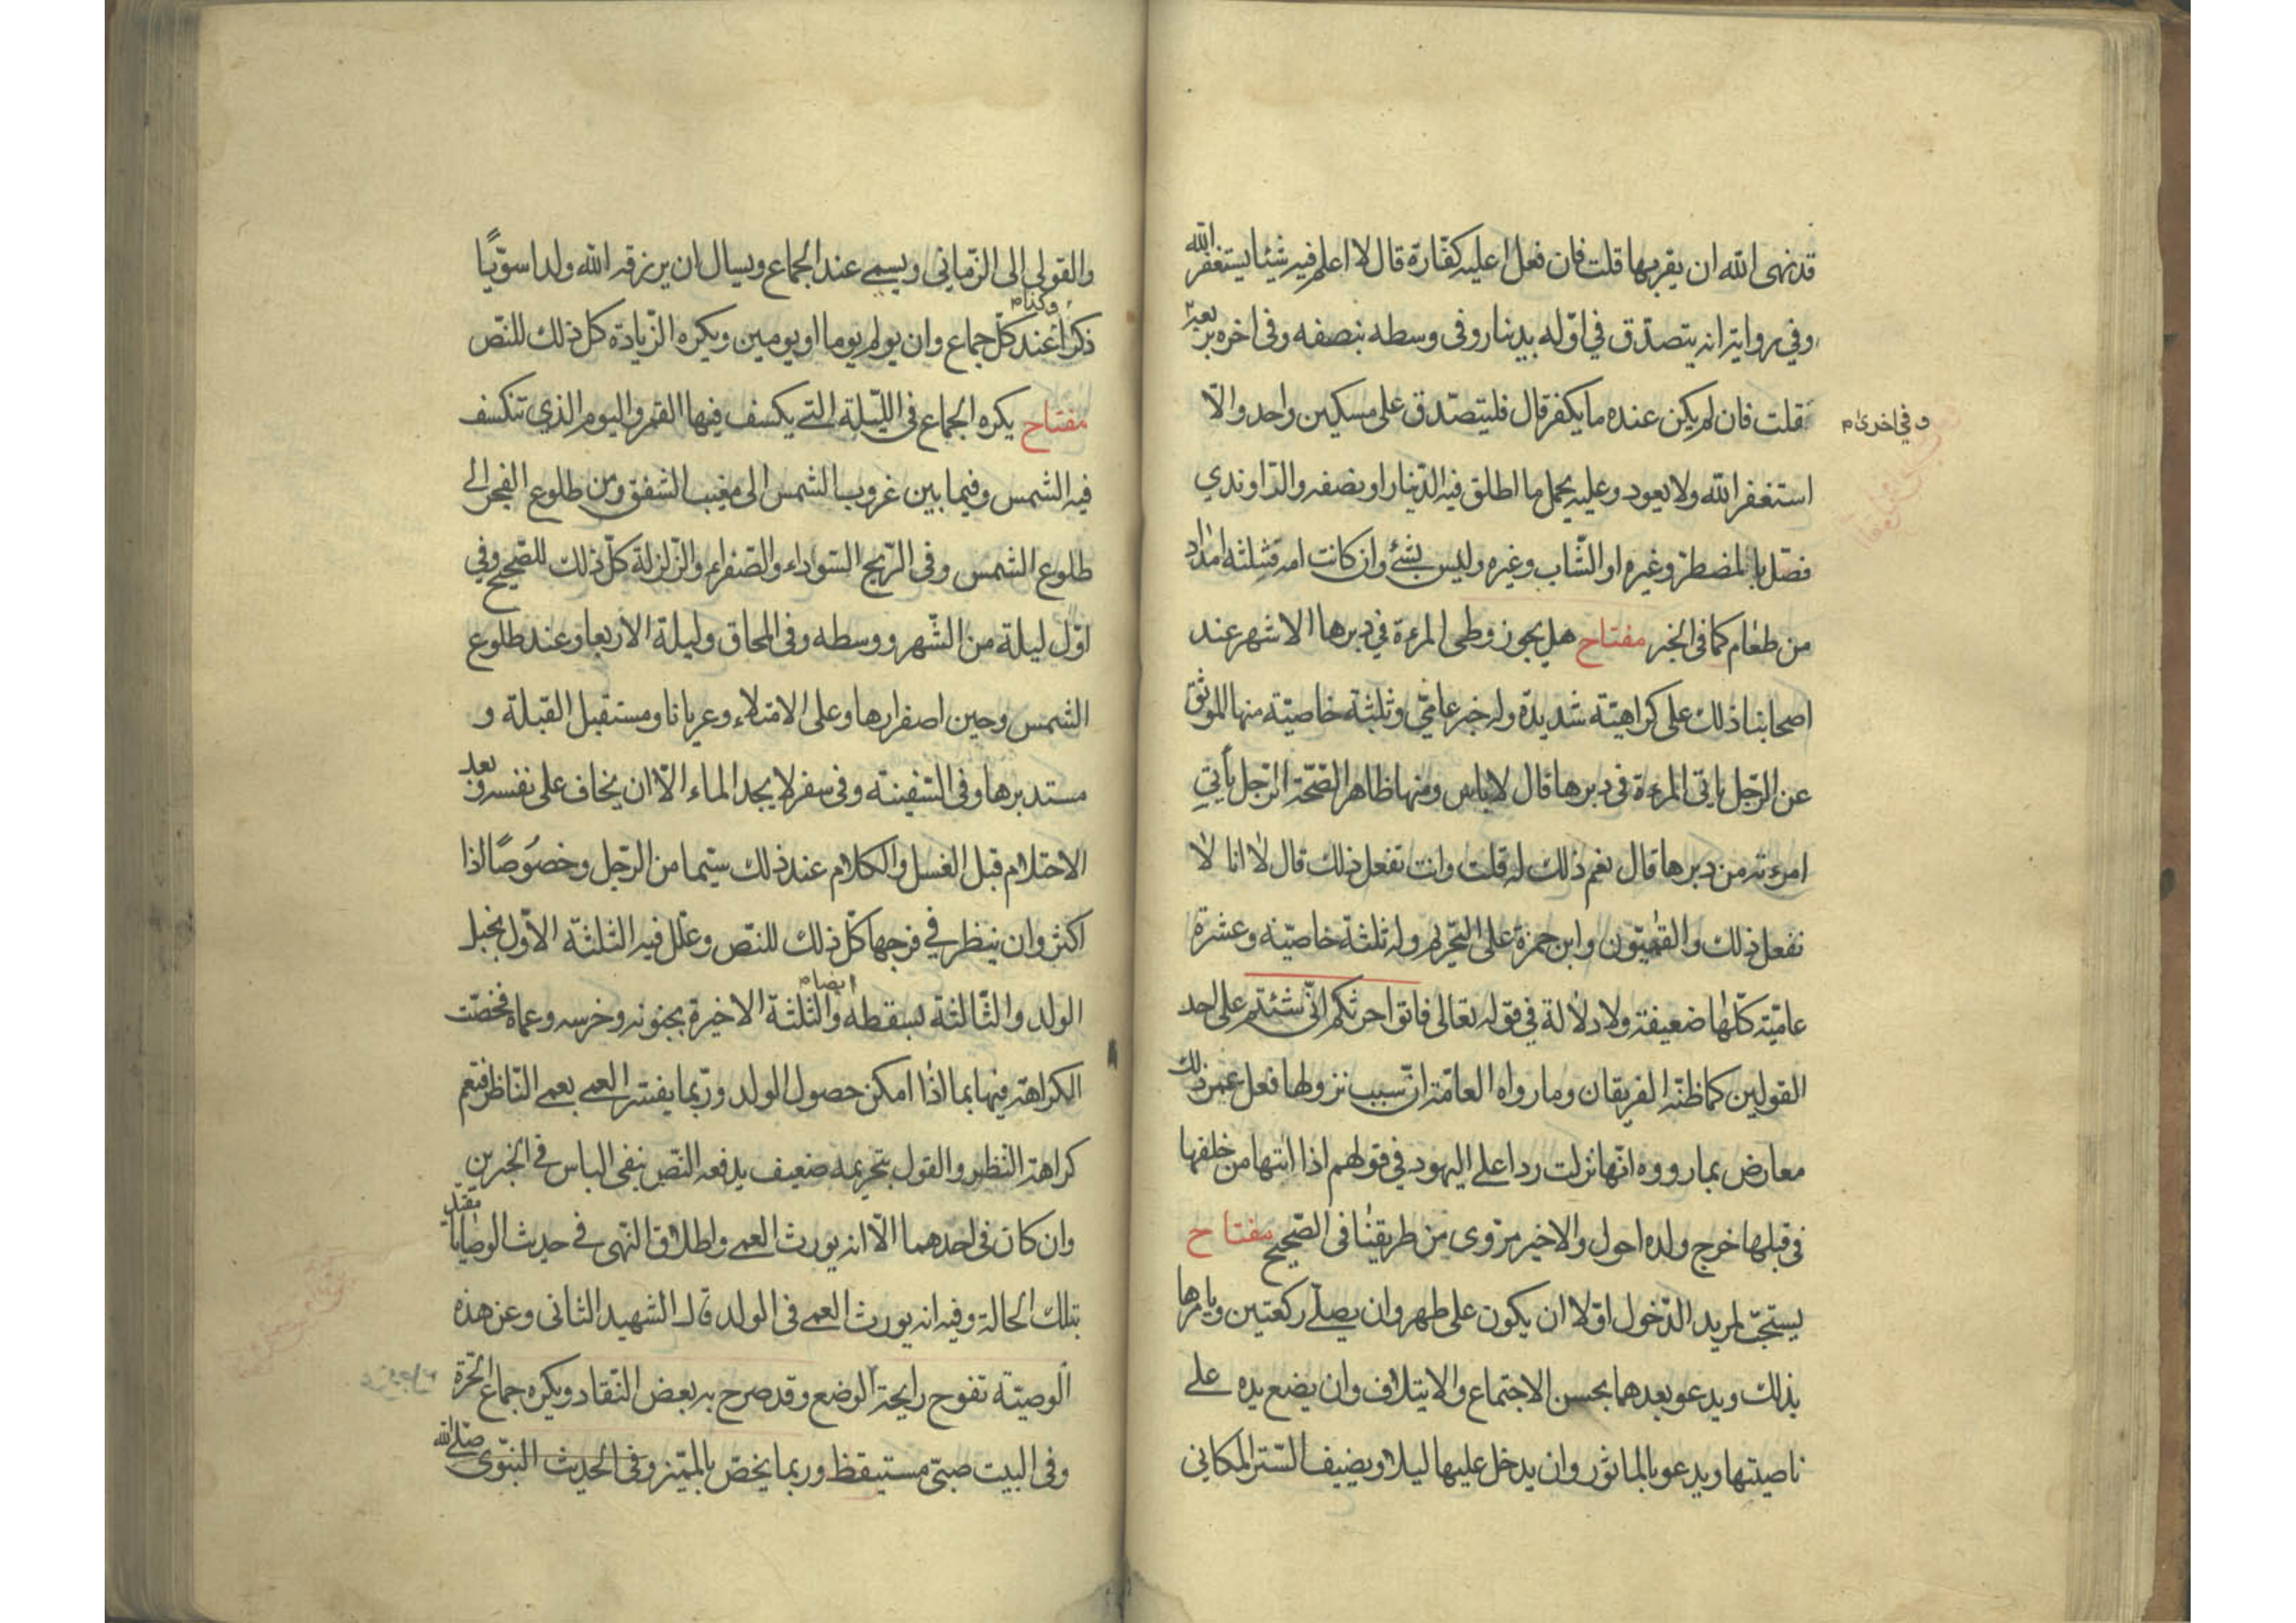 قد نهى الله ان يقربها قلت فان فعل اعليه كفّارة قال لا اعلم فيه شيئا يستغفر الله
وفي رواية انه يتصدّق في اوّله بدينار وفى وسطه بنصفه وفى اخره بربعه
قلت فان لم يكن عنده ما يكفر قال فليتصدّق على مسكين واحد والّا
وفي اخرى م
استغفر الله ولا يعود وعليه يحمل ما اطلق فيه الدّينار او نصفه والرّاوندي
فصّل بالمضطرّ وغيره او الشّاب وغيره وليس بشئ وان كانت امة فثلثة امداد
من طعام كما فى الخبر مفتاح هل يجوز وطى المرءة في دبرها الاشهر عند
اصحابنا ذلك على كراهيّة شديدة وله خبر عامّي وثلثة خاصيّة منها الموثق
عن الرّجل ياتى المرءة فى دبرها قال لا باس ومنها ظاهر الصّحّة الرّجل يأتي
امرءته من دبرها قال نعم ذلك له قلت وانت تفعل ذلك قال لا انا لا
نفعل ذلك والقمّيّون وابن حمزة على التّحريم وله ثلثة خاصيّة وعشرة
عاميّة كلّها ضعيفة ولا دلالة في قوله تعالى فاتوا حرثكم انّى شئتم على احد
القولين كما ظنّه الفريقان وما رواه العامّة انّ سبب نزولها فعل عمر ذلك
معارض بما رووه انّها نزلت ردا على اليهود في قولهم اذا اتتها من خلفها
في قبلها خرج ولده احول والاخير مروى من طريقنا فى الصّحيح مفتاح
يستحبّ لمريد الدّخول اوّلا ان يكون على طهر وان يصلّي ركعتين ويامرها
بذلك ويدعو بعدهما بحسن الاجتماع والايتلاف وان يضع يده على
ناصيتها ويدعو بالماثور وان يدخل عليها ليلا ويضيف السّتر المكاني
والقولى الى الزّمانى ويسمى عند الجماع ويسال ان يرزقه الله ولدا سويّا
ذكرا وكذا م عند كلّ جماع وان يولم يوما او يومين ويكره الزّيادة كل ذلك للنّص
مفتاح يكره الجماع فى اللّيلة التى يكسف فيها القمر واليوم الذي تنكسف
فيه الشمس وفيما بين غروب الشمس الى مغيب الشفق ومن طلوع الفجر الى
طلوع الشمس وفى الرّيح السّوداء والصّفراء والزّلزلة كلّ ذلك للصّحيح وفي
اوّل ليلة من الشّهر ووسطه وفى المحاق وليلة الاربعا وعند طلوع
الشمس وحين اصفرارها وعلى الامتلاء وعريانا ومستقبل القبلة و
مستدبرها وفى السّفينة وفى سفر لا يجد الماء الّا ان يخاف على نفسه وبعد
الاحتلام قبل الغسل والكلام عند ذلك سيّما من الرّجل وخصوصًا اذا
اكثر وان ينظر في فرجها كلّ ذلك للنّص وعلّل فيه الثلثة الاول بخبل
الولد والثّالثة بسقطه ايضا م والثّلثة الاخيرة بجنونه وخرسه وعماه فخصّت
الكراهة فيها بما اذا امكن حصول الولد وربّما يفسّر العمى بعمى النّاظر فتعم
كراهة النّظر والقول بتحريمه ضعيف يدفعه النّص بنفى الباس في الخبرين
وان كان فى احدهما الّا انه يورث العمى واطلاق النّهى في حديث الوصايا مقيّد
بتلك الحالة وفيه انه يورث العمى فى الولد قال الشهيد الثانى وعن هذه
الوصيّة تفوح رايحة الوضع وقد صرح به بعض النّقاد ويكره جماع الحرّة
وفى البيت صبىّ مستيقظ وربما يخصّ بالمميّز وفى الحديث النبوّى صلى الله